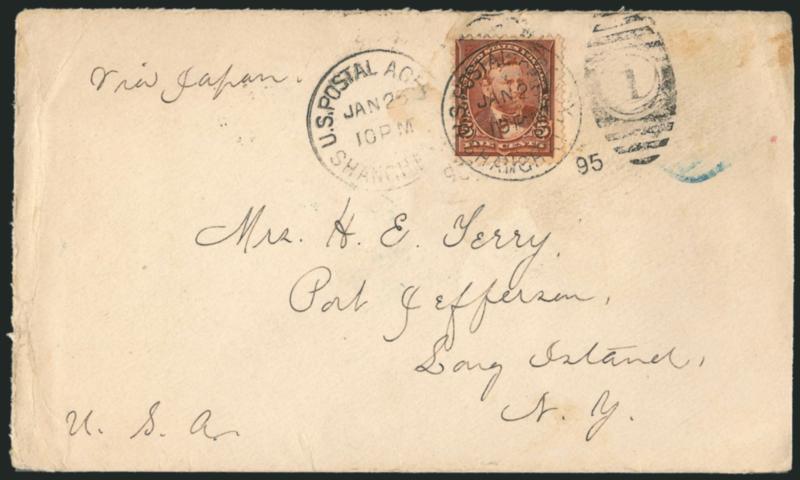 Via Japan.
U.S. POSTAL AG
JAN 2
10 PM
SHANGH
U.S. POSTAL
JAN 2
SHANGH
FIVE CENTS
1
95
Mrs. H. E. Terry,
Port Jefferson,
Long Island,
N. Y.
U. S. A.